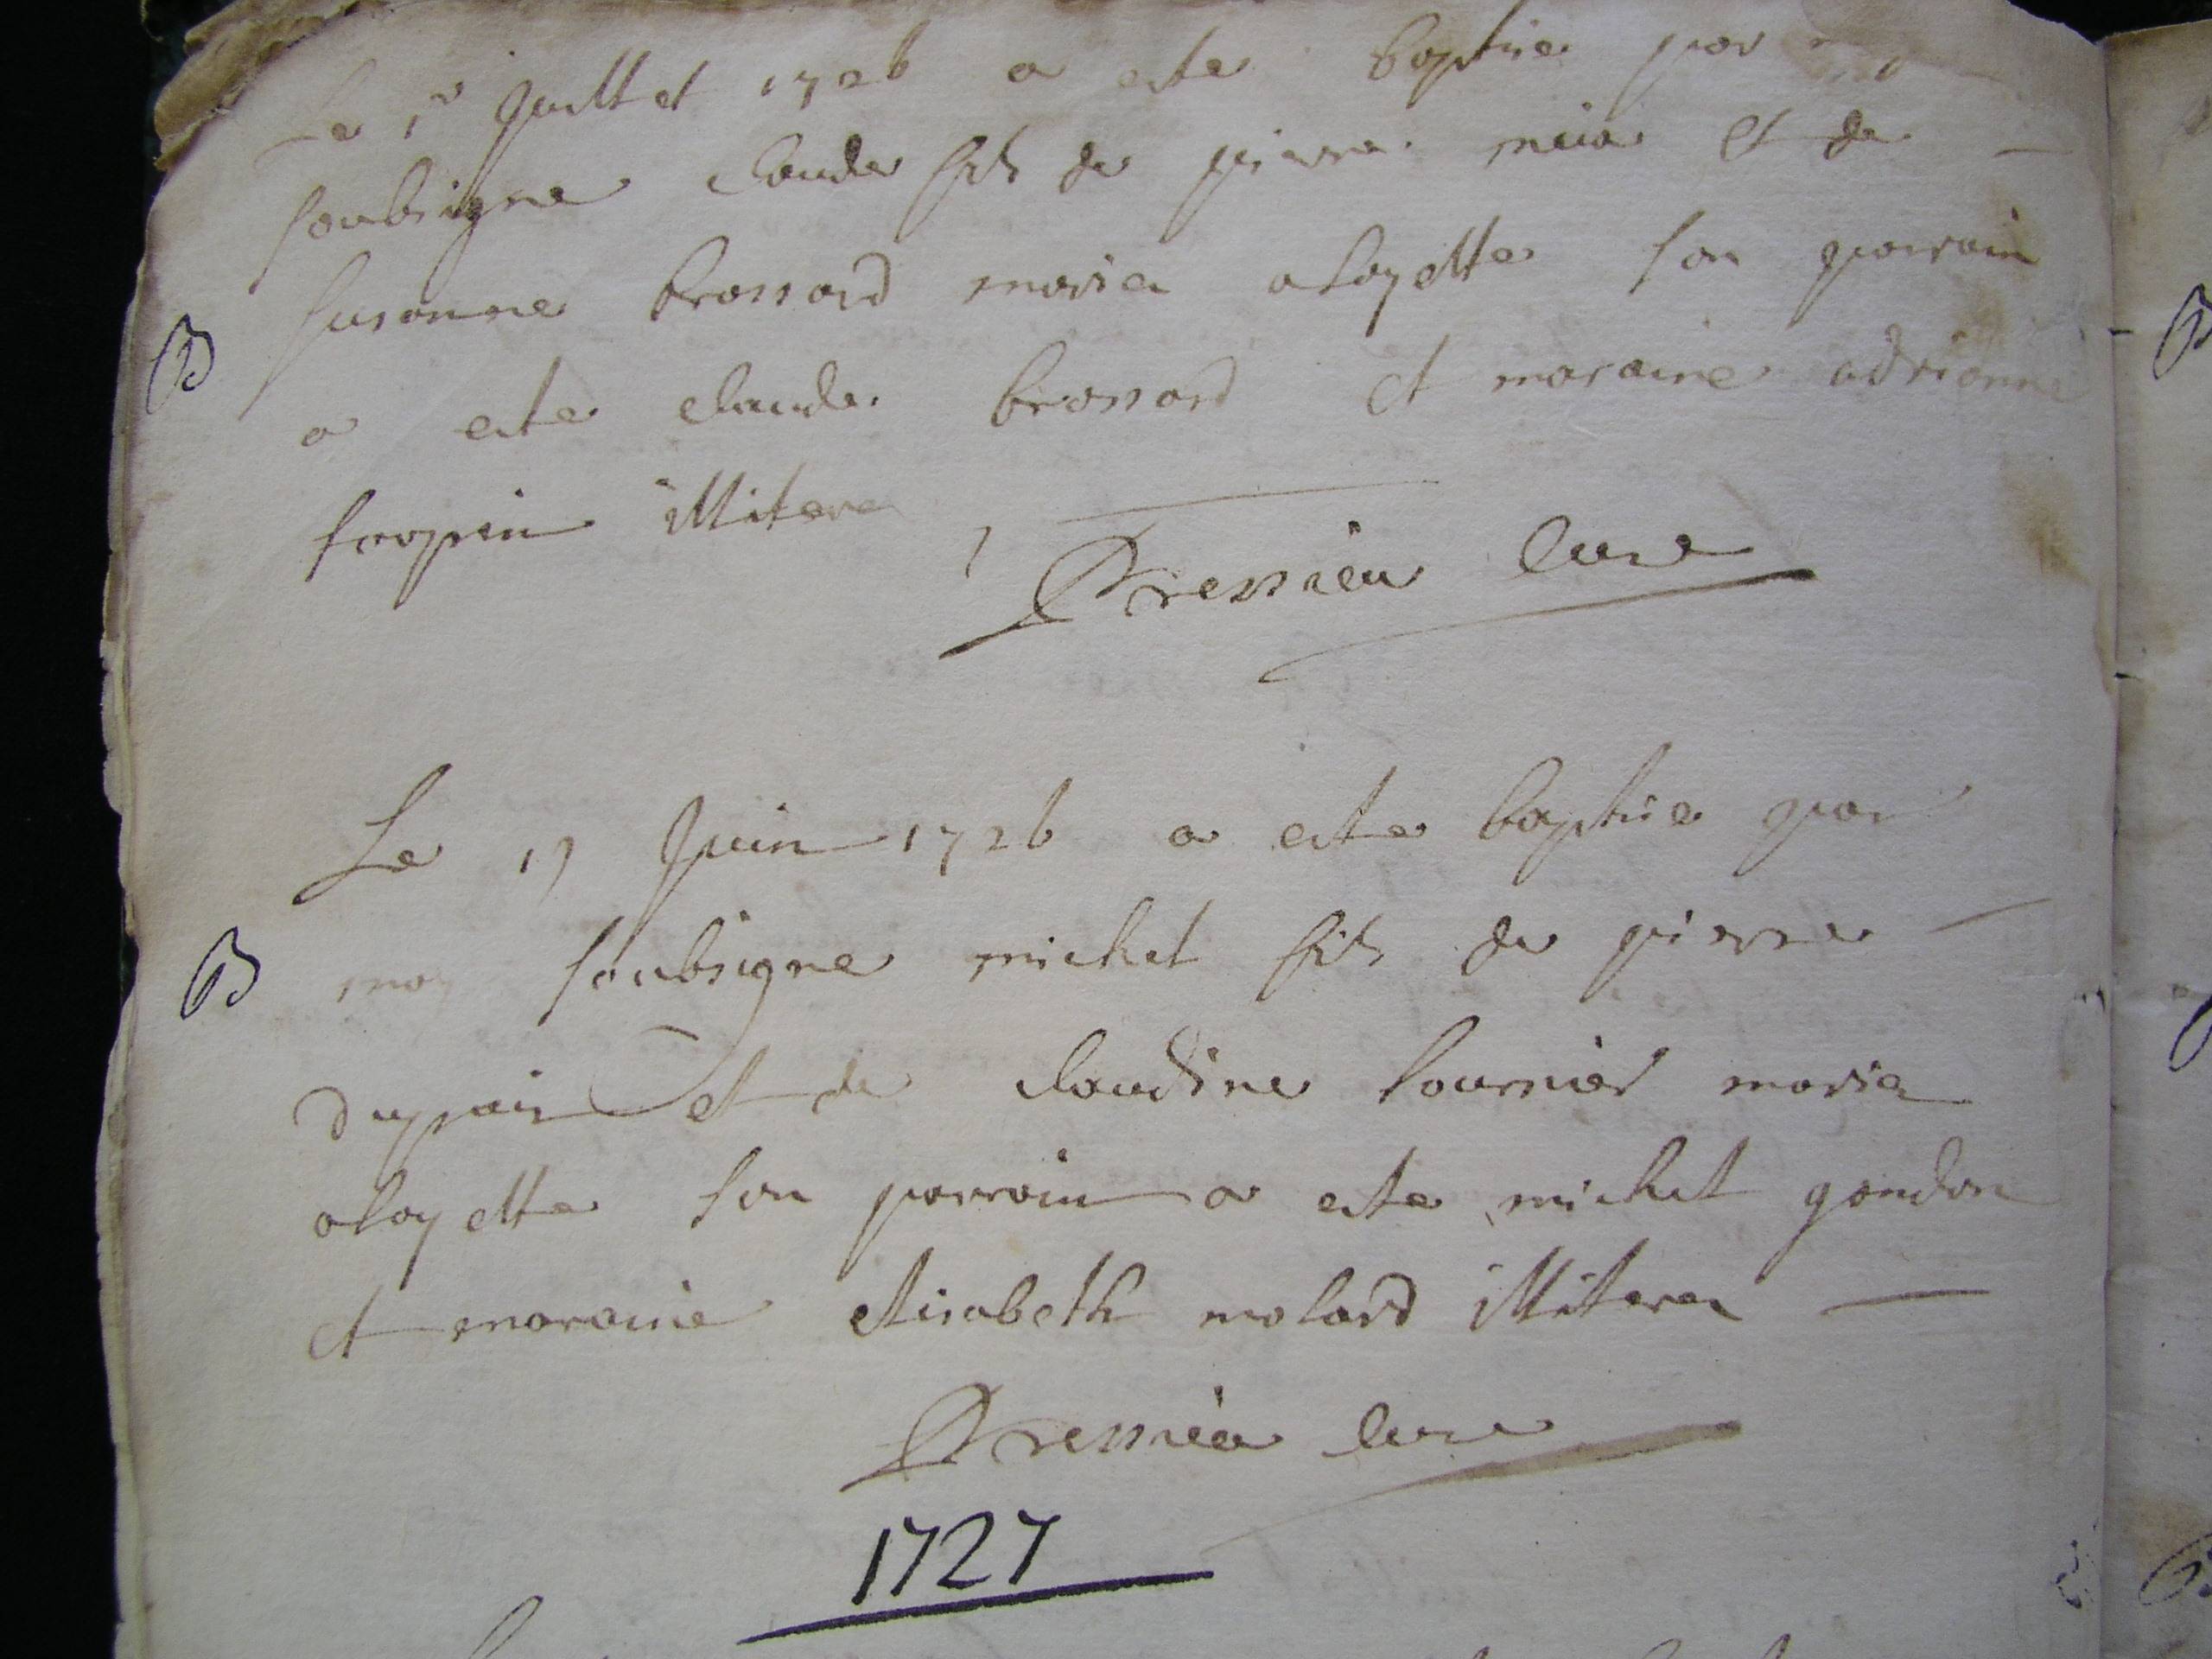 Le 1er Juillet 1726 a este baptise par moy
soubsigne claude fils de pierre et de
susanne brossard maries a loyette son parrain
B
a este claude brossard et maraine adrianne
illiteres
Pressieu Cure
Le 17 Juin 1726 a este baptise par
B moy soubsigne michel fils de pierre
dupuis et de claudine fournier maries
a loyette son parrain a este michel gondon
et maraine elisabeth molard illiteres
Pressieu Cure
1727